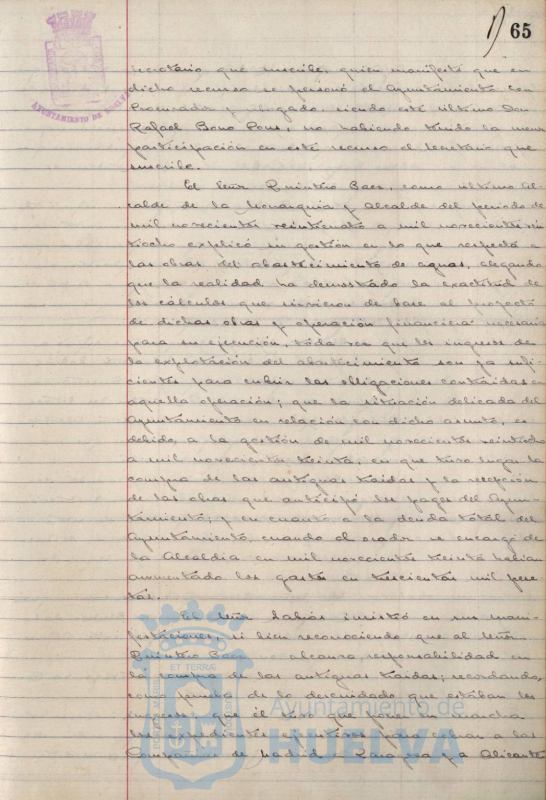 65
AYUNTAMIENTO DE HUELVA
secretario que suscribe, quien manifestó que en
dicho recurso se personó el Ayuntamiento con
Procurador y abogado, siendo este último Don
Rafael Bono Pons, no habiendo tenido la menor
participación en este recurso el Secretario que
suscribe.
El Señor Quintero Baez, como último Al-
calde de la Monarquia y Alcalde del periodo de
mil novecientos veinticuatro a mil novecientos vein
tiocho explicó su gestión en lo que respecta a
las obras del abastecimiento de aguas, alegando
que la realidad ha demostrado la exactitud de
los cálculos que sirvieron de base al proyecto
de dichas obras y operación financiera necesaria
para su ejecución, toda vez que los ingresos de
la explotación del abastecimiento son ya sufi-
cientes para cubrir las obligaciones contraidas en
aquella operación; que la situación delicada del
Ayuntamiento en relación con dicho asunto, es
debido, a la gestión de mil novecientos veintiocho
a mil novecientos treinta, en que tuvo lugar la
compra de las antiguas traidas y la recepción
de las obras que anticipó los pagos del Ayun-
tamiento; y en cuanto a la deuda total del
Ayuntamiento, cuando el orador se encargó de
la Alcaldia en mil novecientos treinta habian
aumentado los gastos en trescientas mil pese-
tas.
El Señor insistió en sus mani-
festaciones, si bien reconociendo que al Señor
Quintero Baez alcanza responsabilidad en
la compra de las antiguas traidas; recordando,
de lo descuidado que estaban los
que él tuvo que poner en marcha
los expedientes ejecutivos para cobrar a las
Compañias de Madrid Zaragoza y a Alicante
ET TERRÆ
Ayuntamiento de
HUELVA